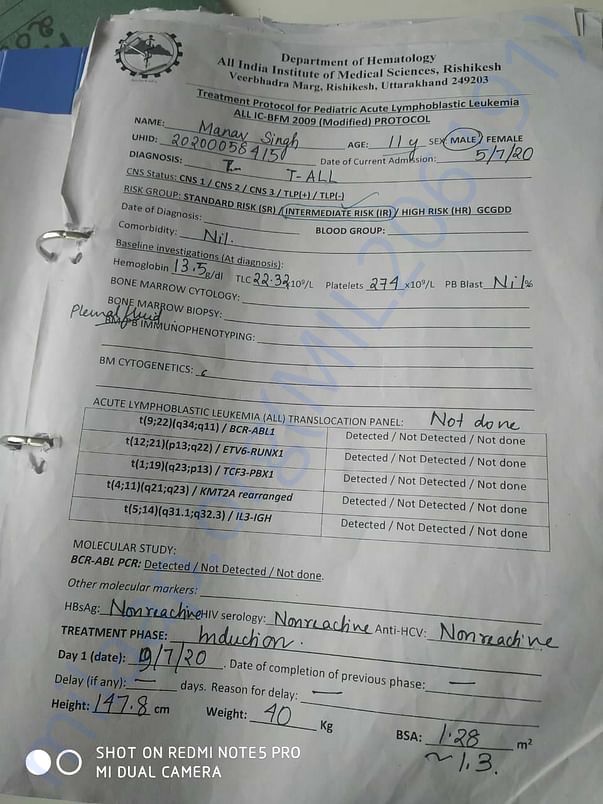 Department of Hematology
All India Institute of Medical Sciences, Rishikesh
Veerbhadra Marg, Rishikesh, Uttarakhand 249203
Treatment Protocol for Pediatric Acute Lymphoblastic Leukemia
ALL IC-BFM 2009 (Modified) PROTOCOL
NAME: Manav Singh
UHID: 20200058415 AGE: 11 y SEX MALE / FEMALE
DIAGNOSIS: T- T-ALL Date of Current Admission: 5/7/20
CNS Status: CNS 1 / CNS 2 / CNS 3 / TLP(+) / TLP(-)
RISK GROUP: STANDARD RISK (SR) / INTERMEDIATE RISK (IR) / HIGH RISK (HR) GCGDD
Date of Diagnosis: BLOOD GROUP:
Comorbidity: Nil.
Baseline investigations (At diagnosis):
Hemoglobin 13.5 g/dl TLC 22.32 10⁹/L Platelets 274 x10⁹/L PB Blast Nil %
BONE MARROW CYTOLOGY:
BONE MARROW BIOPSY:
Pleural fluid
BM/PB IMMUNOPHENOTYPING:
BM CYTOGENETICS:
ACUTE LYMPHOBLASTIC LEUKEMIA (ALL) TRANSLOCATION PANEL: Not done
t(9;22)(q34;q11) / BCR-ABL1 Detected / Not Detected / Not done
t(12;21)(p13;q22) / ETV6-RUNX1 Detected / Not Detected / Not done
t(1;19)(q23;p13) / TCF3-PBX1 Detected / Not Detected / Not done
t(4;11)(q21;q23) / KMT2A rearranged Detected / Not Detected / Not done
t(5;14)(q31.1;q32.3) / IL3-IGH Detected / Not Detected / Not done
MOLECULAR STUDY:
BCR-ABL PCR: Detected / Not Detected / Not done.
Other molecular markers:
HBsAg: Nonreactive HIV serology: Nonreactive Anti-HCV: Nonreactive
TREATMENT PHASE: Induction.
Day 1 (date): 9/7/20. Date of completion of previous phase: —
Delay (if any): — days. Reason for delay: —
Height: 147.8 cm Weight: 40 Kg BSA: 1.28 m²
~ 1.3.
SHOT ON REDMI NOTE5 PRO
MI DUAL CAMERA